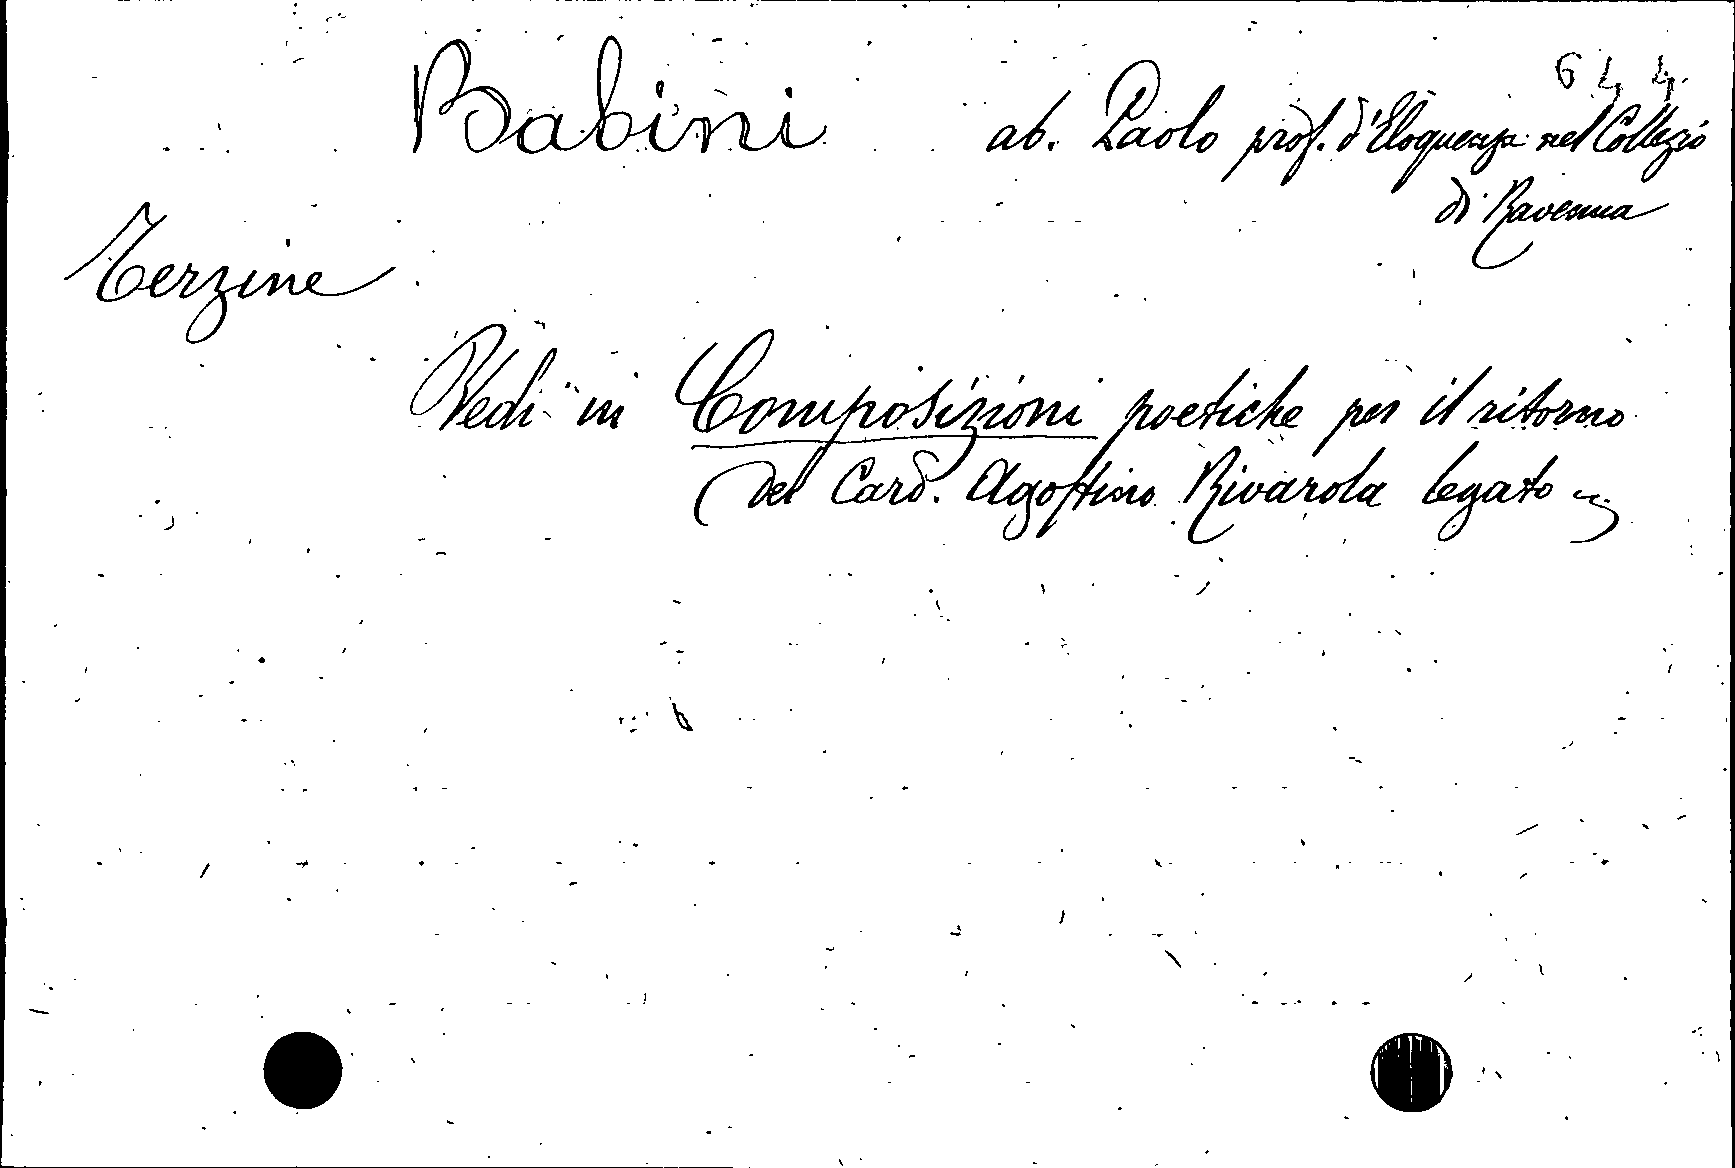 644
Babini ab. Paolo prof. d'Eloquenza nel Collegio
di Ravenna
Terzine
Vedi in Composizioni poetiche per il ritorno
del Card. Agostino Rivarola legato